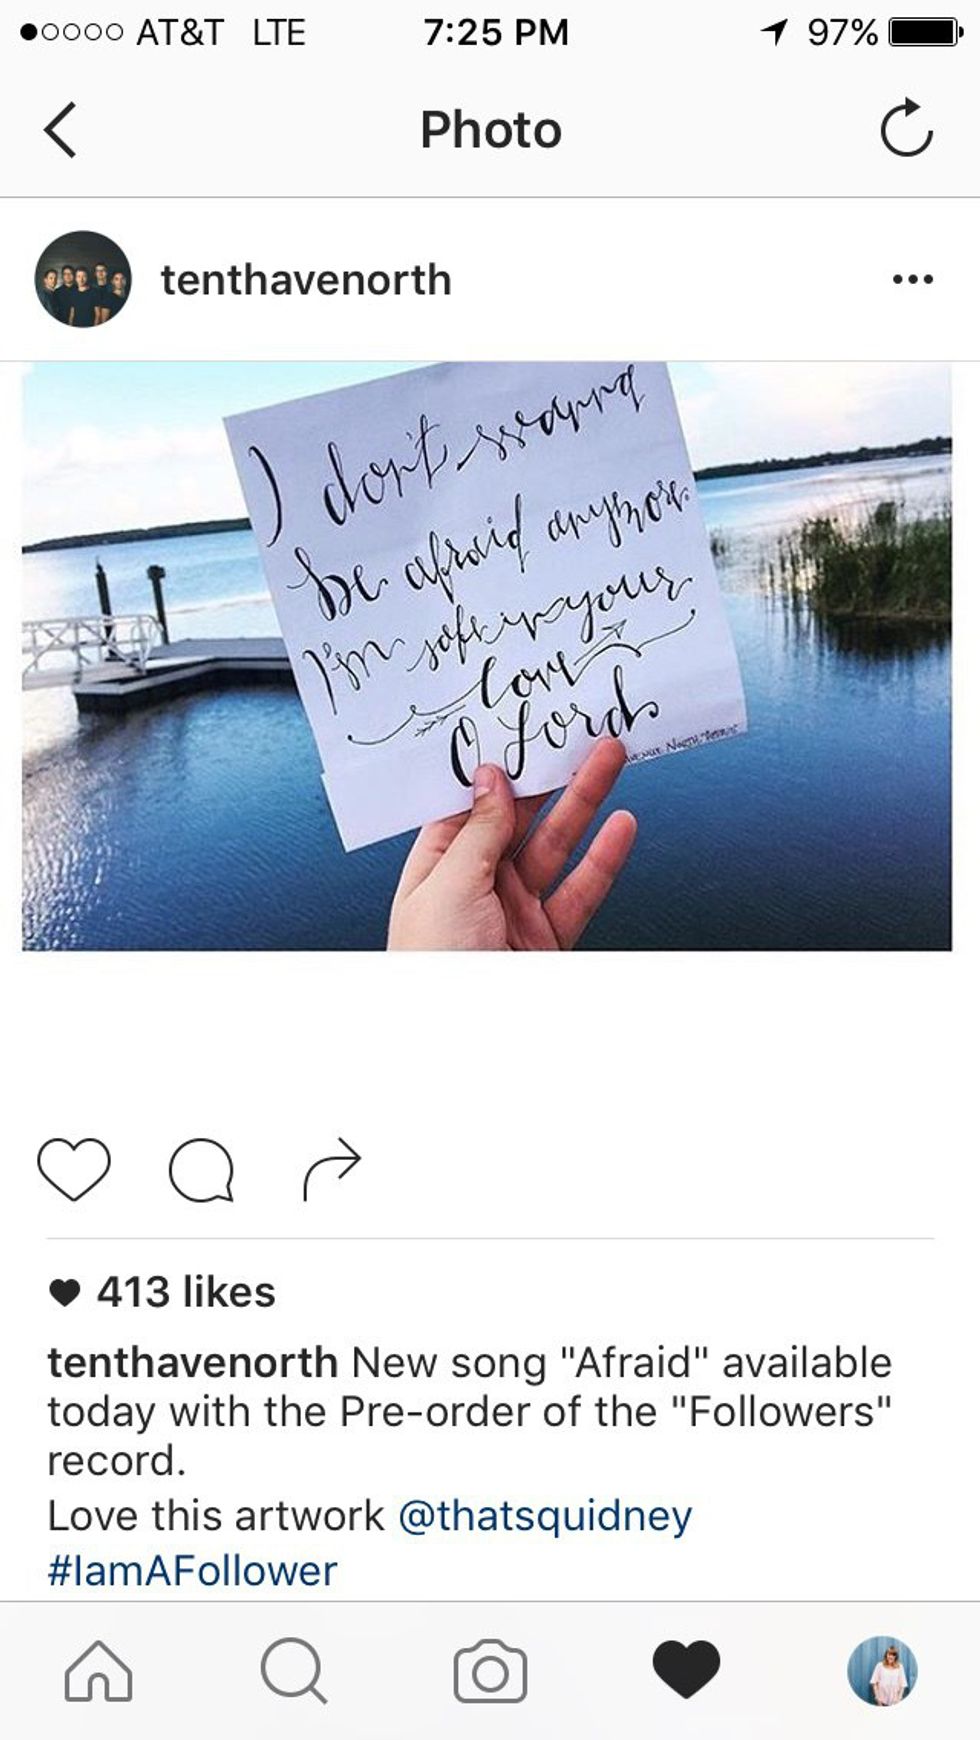 AT&T LTE 7:25 PM 97%
Photo
tenthavenorth
I don't
be afraid anymore.
I'm safe in your
love
O Lord
AVENUE NORTH "AFRAID"
413 likes
tenthavenorth New song "Afraid" available
today with the Pre-order of the "Followers"
record.
Love this artwork @thatsquidney
#IamAFollower